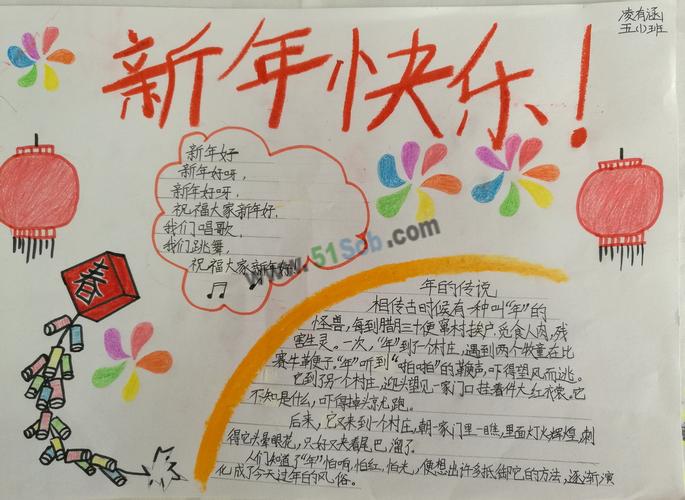 凌有涵
五(1)班
新年快乐!
新年好
新年好呀,
新年好呀,
祝福大家新年好.
我们唱歌,
我们跳舞,
祝福大家新年好!
www.51Sob.com
春
年的传说
相传古时候有一种叫“年”的
怪兽,每到腊月三十便窜村挨户,觅食人肉,残
害生灵。一次,“年”到了一个村庄,遇到两个牧童在比
赛牛鞭子。“年”听到“啪啪”的鞭声,吓得望风而逃。
它到了另一个村庄,迎头望见一家门口挂着件大红衣裳。它
不知是什么,吓得掉头就跑。
后来,它又来到一个村庄,朝一家门里一瞧,里面灯火辉煌,刺
得它头晕眼花,只好又夹着尾巴溜了。
人们知道了“年”怕响,怕红,怕光,便想出许多抵御它的方法,逐渐演
化成了今天过年的风俗。